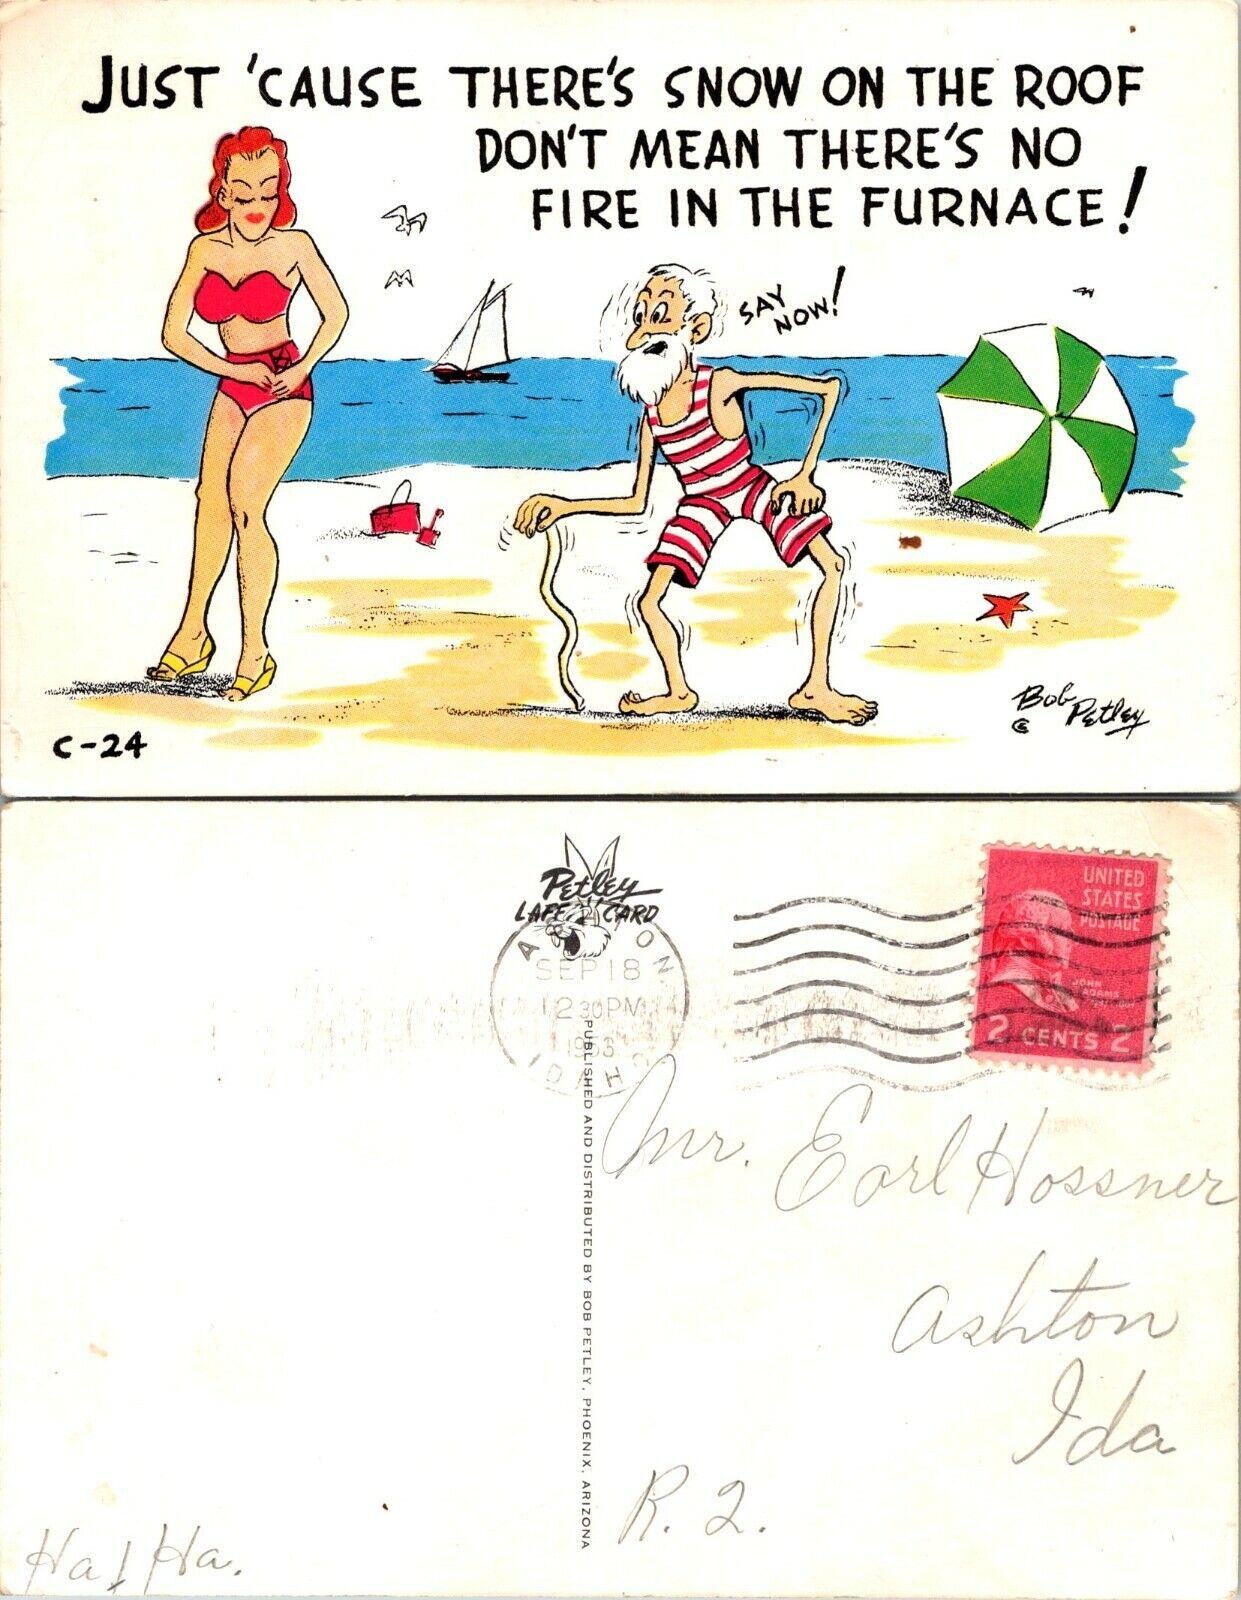 JUST 'CAUSE THERE'S SNOW ON THE ROOF
DON'T MEAN THERE'S NO
FIRE IN THE FURNACE!
SAY
NOW!
Bob
© Petley
C-24
Petley
LAFF CARD
SEP 18
12 30 PM
IDAHO
UNITED
STATES
POSTAGE
JOHN
ADAMS
2 CENTS 2
PUBLISHED AND DISTRIBUTED BY BOB PETLEY, PHOENIX, ARIZONA
Mr. Earl Hossner
Ashton
Ida
R. 2.
Ha! Ha.